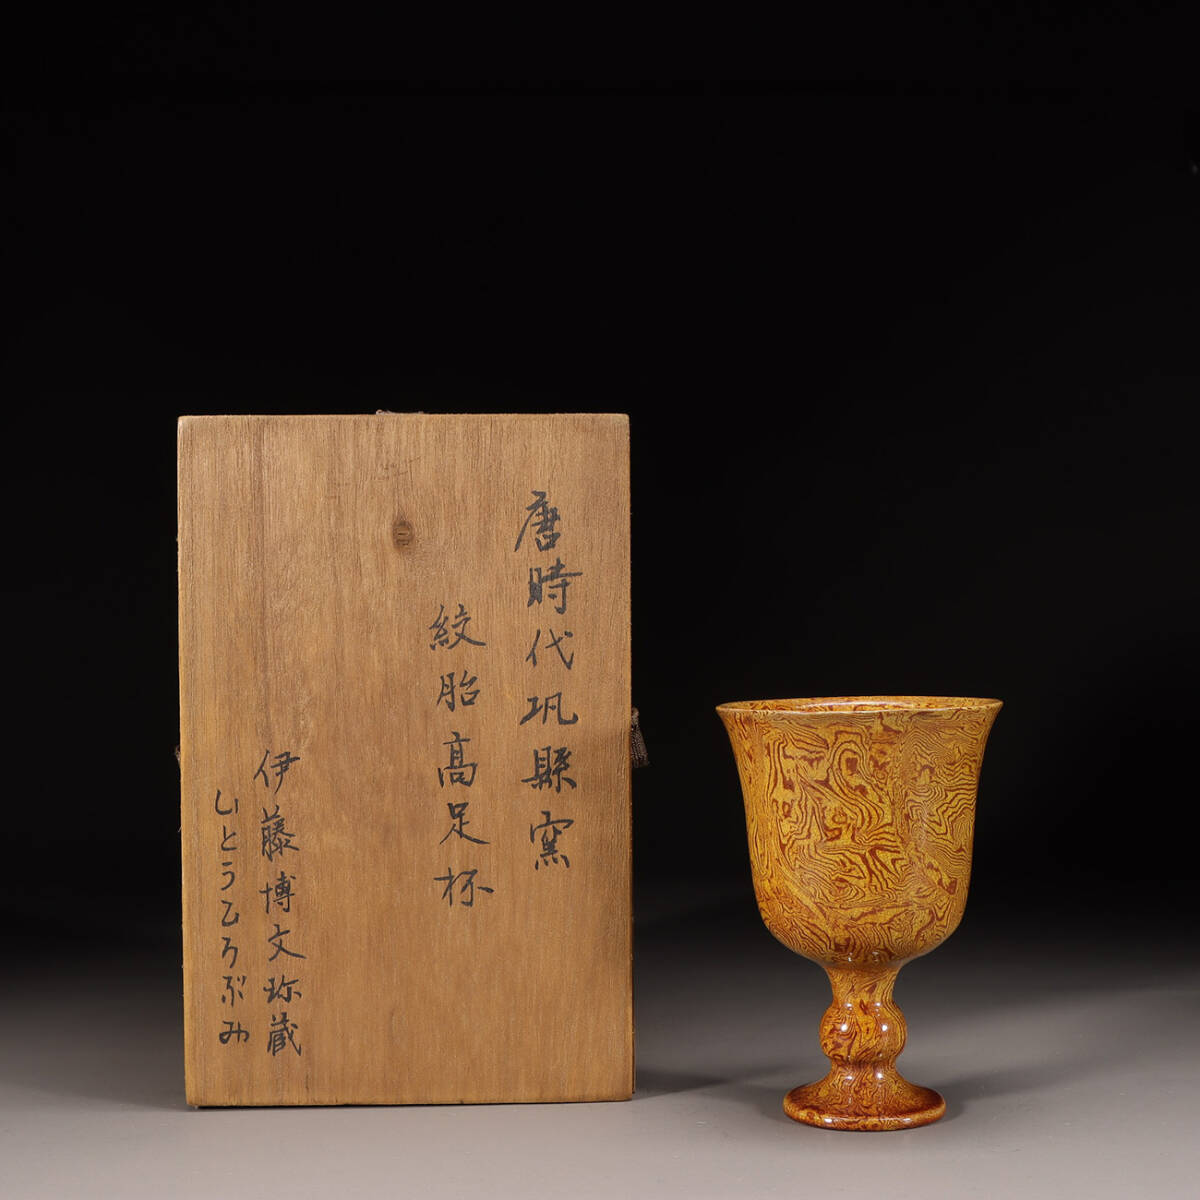 唐時代巩縣窯
絞胎高足杯
伊藤博文珎蔵
いとうひろぶみ